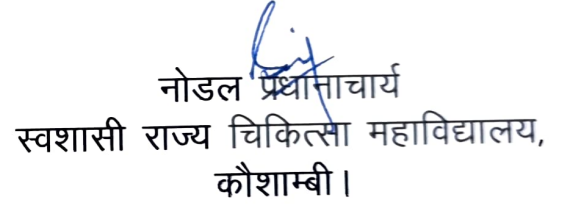 नोडल प्रधानाचार्य
स्वशासी राज्य चिकित्सा महाविद्यालय,
कौशाम्बी।